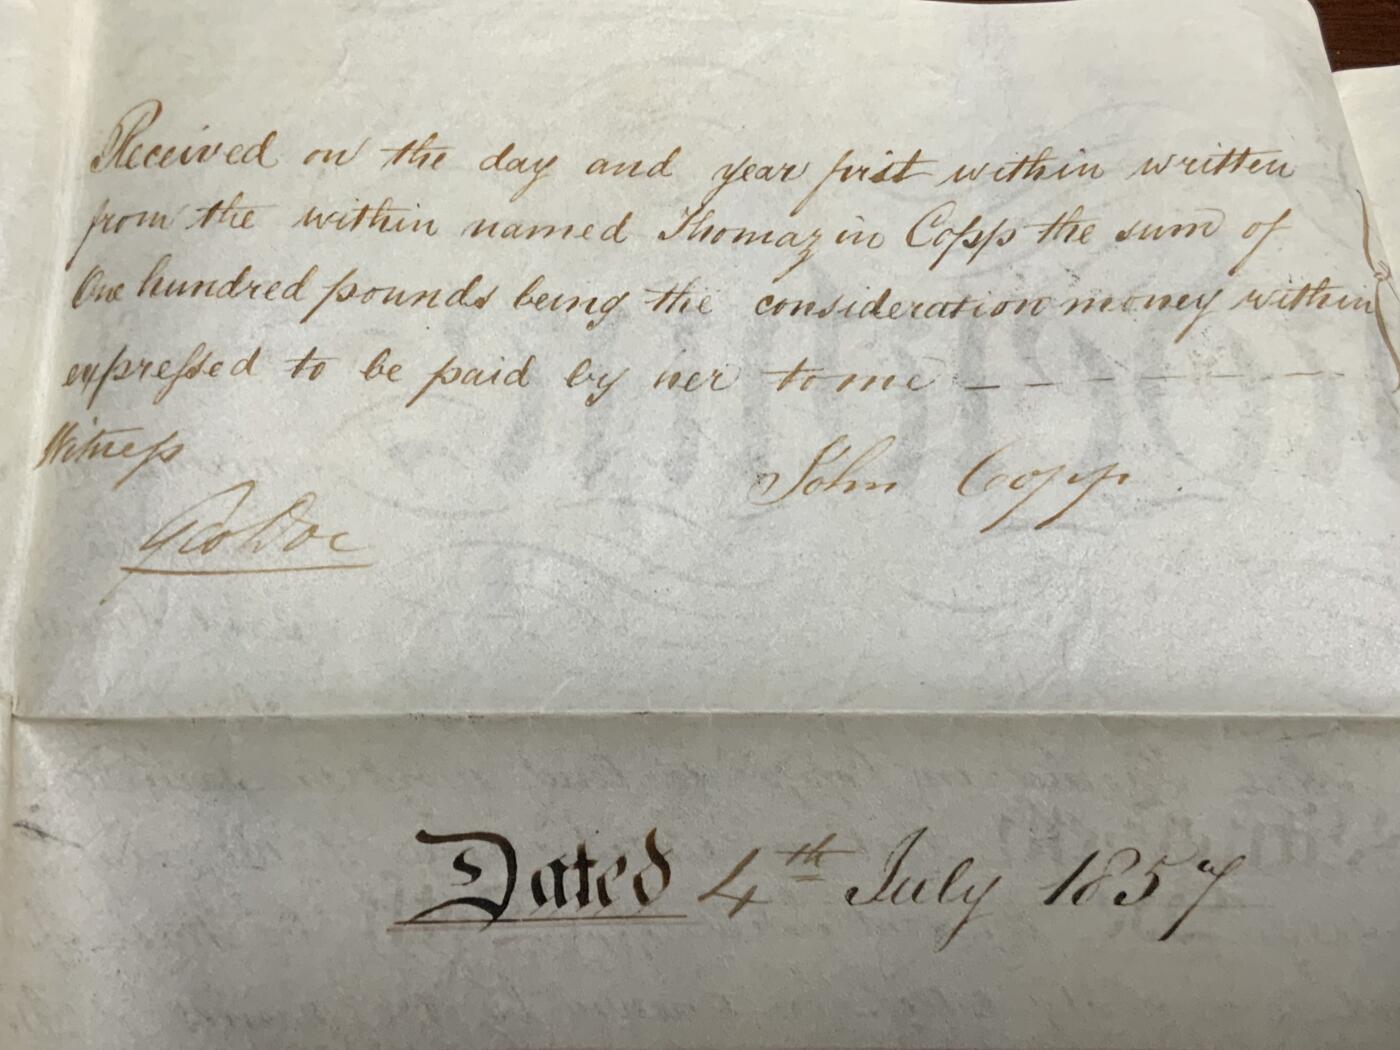 Received on the day and year first within written
from the within named Thomazin Copp the sum of
One hundred pounds being the consideration money within
expressed to be paid by her to me
Witness
John Copp
Geo Doe
Dated 4th July 1857